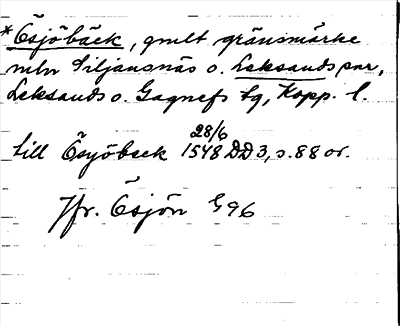 *Ösjöbäck, gmlt gränsmärke
mln Siljansnäs o. Leksands snr,
Leksands o. Gagnefs tg, Kopp. l.
till Ösyöbeck 28/6 1548 DD3, s. 88 or.
Jfr. Ösjön G96